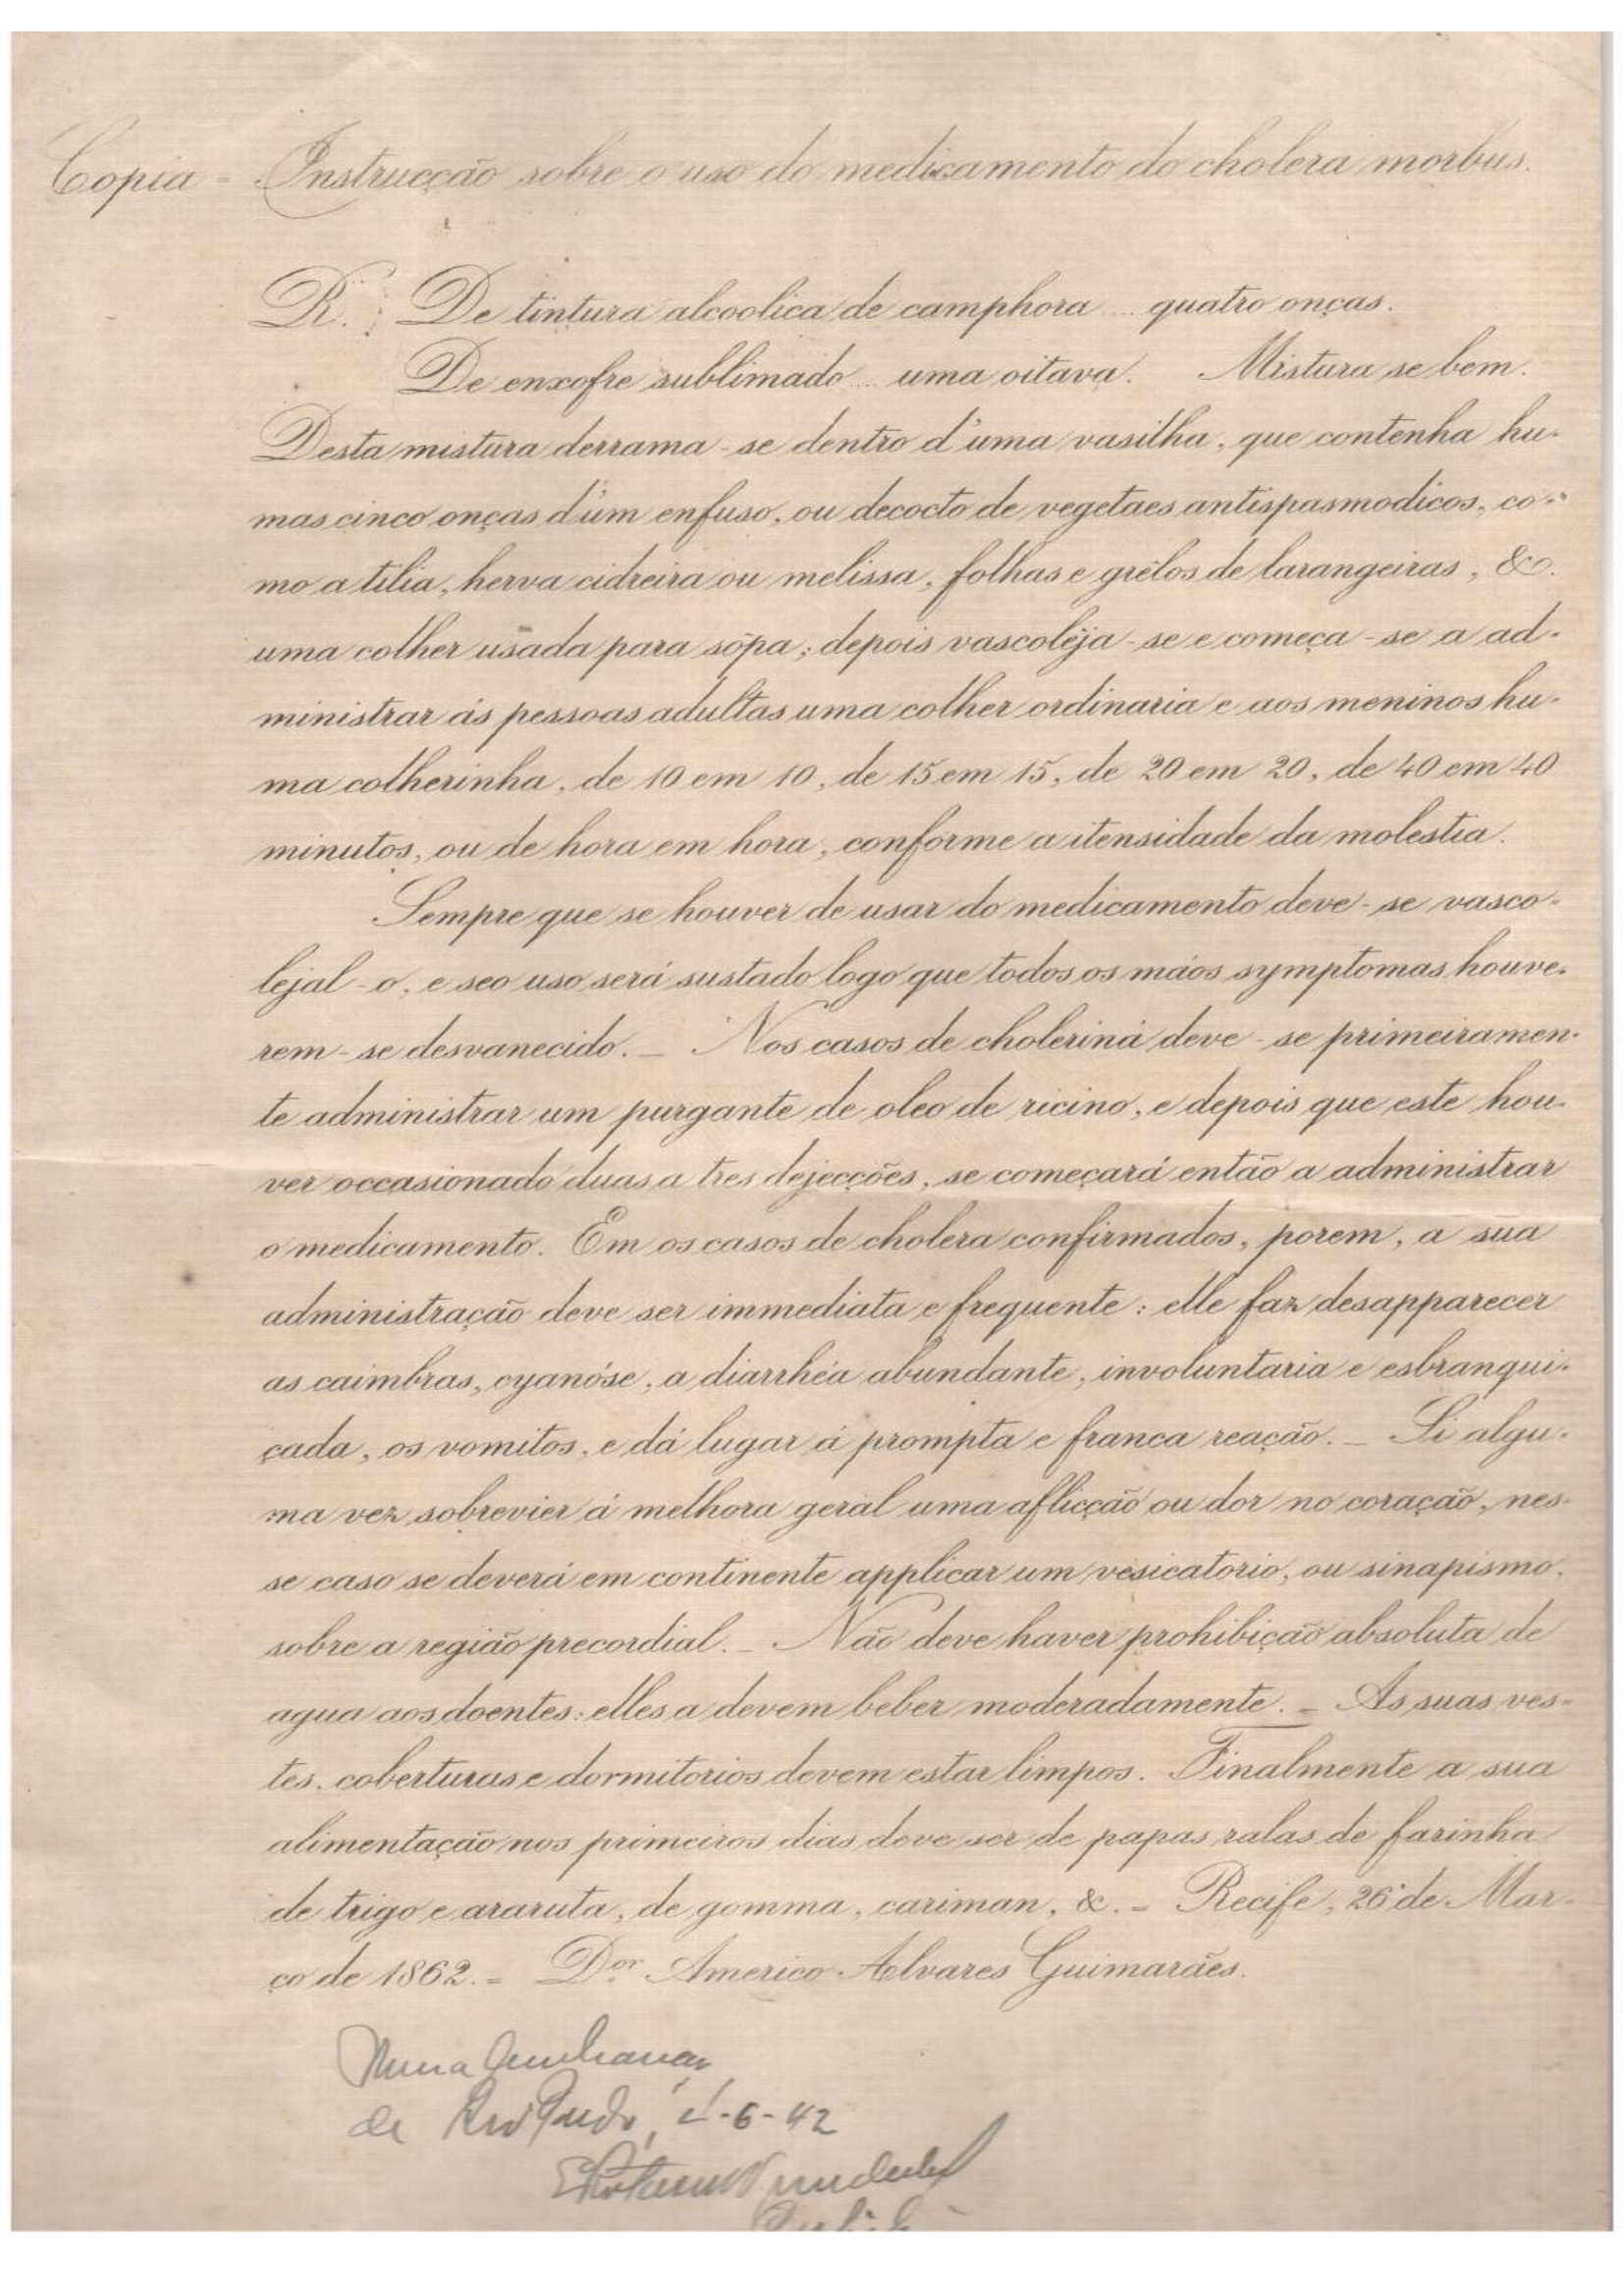 Copia - Instrucção sobre o uso do medicamento do cholera morbus.
R. : De tintura alcoolica de camphora .... quatro onças.
De enxofre sublimado ... uma oitava. Mistura se bem.
Desta mistura derrama-se dentro d'uma vasilha, que contenha hu-
mas cinco onças d'um enfuso, ou decocto de vegetaes antispasmodicos, co-
mo a tilia, herva cidreira ou melissa, folhas e grêlos de larangeiras, &c.
uma colher usada para sôpa; depois vascolêja-se e começa-se a ad-
ministrar ás pessoas adultas uma colher ordinaria e aos meninos hu-
ma colherinha, de 10 em 10, de 15 em 15, de 20 em 20, de 40 em 40
minutos, ou de hora em hora, conforme a itensidade da molestia.
Sempre que se houver de usar do medicamento deve-se vasco-
lejal-o, e seo uso será sustado logo que todos os máos symptomas houve-
rem-se desvanecido. _ Nos casos de cholerina deve-se primeiramen-
te administrar um purgante de oleo de ricino, e depois que este hou-
ver occasionado duas a tres dejecções, se começará então a administrar
o medicamento. Em os casos de cholera confirmados, porem, a sua
administração deve ser immediata e frequente: elle faz desapparecer
as caimbras, cyanóse, a diarrhéa abundante, involuntaria e esbranqui-
çada, os vomitos, e dá lugar á prompta e franca reação. _ Si algu-
ma vez sobrevier á melhora geral uma aflicção ou dor no coração, nes-
se caso se deverá em continente applicar um vesicatorio, ou sinapismo,
sobre a região precordial. _ Não deve haver prohibição absoluta de
agua aos doentes: elles a devem beber moderadamente. _ As suas ves-
tes, coberturas e dormitorios devem estar limpos. Finalmente a sua
alimentação nos primeiros dias deve ser de papas ralas de farinha
de trigo e araruta, de gomma, cariman, &. = Recife, 26 de Mar-
ço de 1862. = Dor Americo Alvares Guimarães.
de 6-42